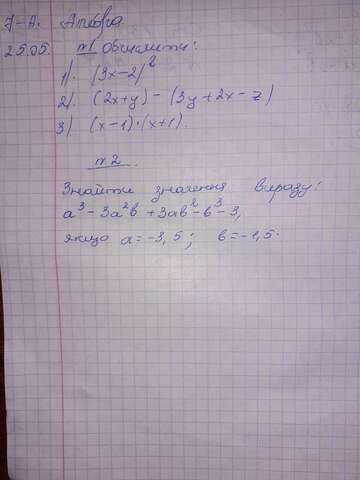 7-А. Алгебра
25.05. №1 Обчисліть:
1). (3x-2)²
2). (2x+y)-(3y+2x-z)
3). (x-1)·(x+1).
№2.
Знайти значення виразу:
a³-3a²b+3ab²-b³-3,
якщо a=-3,5; b=-1,5.